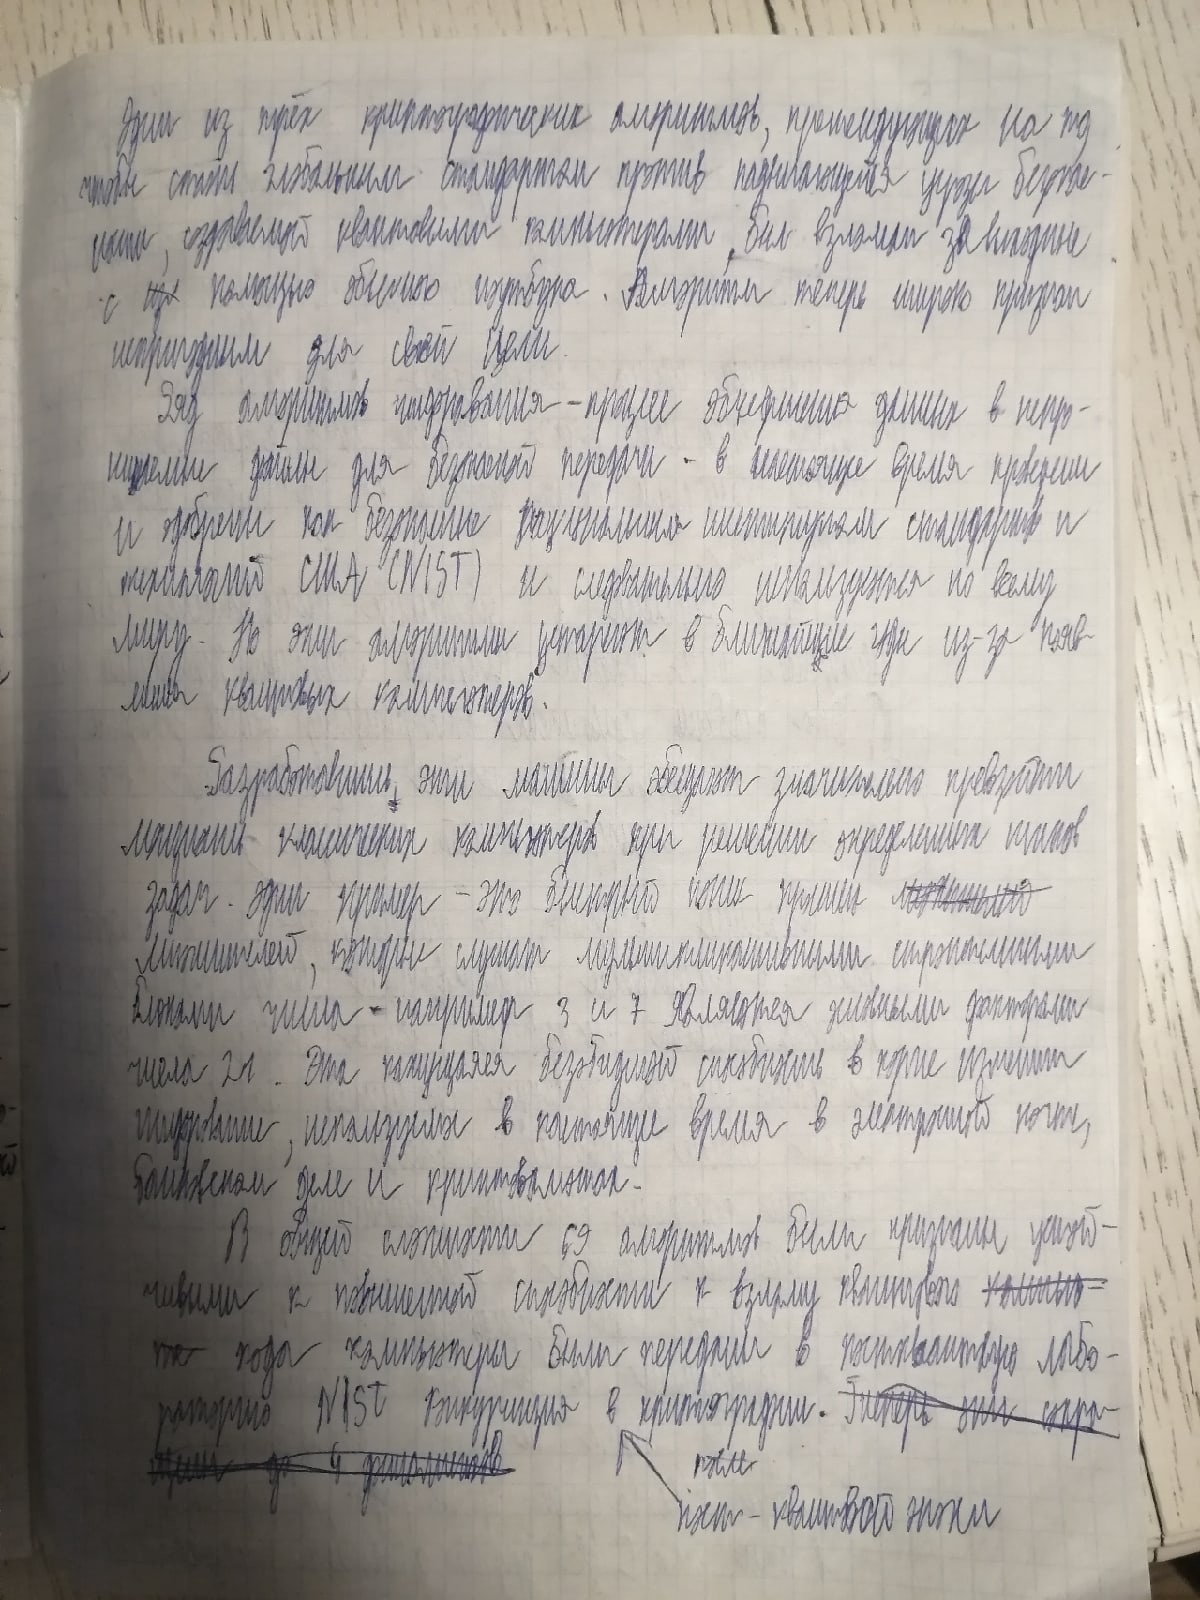 Один из трёх криптографических алгоритмов, претендующих на то
чтобы стать глобальным стандартом против надвигающейся угрозы безопас-
ности, создаваемой квантовыми компьютерами, был взломан за выходные
с помощью обычного ноутбука. Алгоритм теперь широко признан
непригодным для своей цели.
Ряд алгоритмов шифрования - процесс данных в непро-
ницаемые файлы для безопасной передачи - в настоящее время проверены
и одобрены как безопасные Национальным институтом стандартов и
технологий США (NIST) и следовательно используются по всему
миру. Но эти алгоритмы устареют в ближайшие годы из-за появ-
ления квантовых компьютеров.
Разработчики, эти машины обещают значительно превзойти
мощность классических компьютеров при решении определенных типов
задач. Один пример - это быстрый поиск простых
множителей, которые служат мультипликативными строительными
блоками числа - например 3 и 7 являются главными факторами
числа 21. Эта кажущаяся безобидной способность в корне изменит
шифрование, используемых в настоящее время в электронной почте,
банковском деле и криптовалютах.
В общей сложности 69 алгоритмов были признаны устой-
чивыми к повышенной способности к взлому квантового
кода компьютеры были переданы в постквантовую лабо-
раторию NIST Конкуренция в криптографии. Теперь эти сокра-
щены до 4 финалистов
после
пост-квантовой эпохи